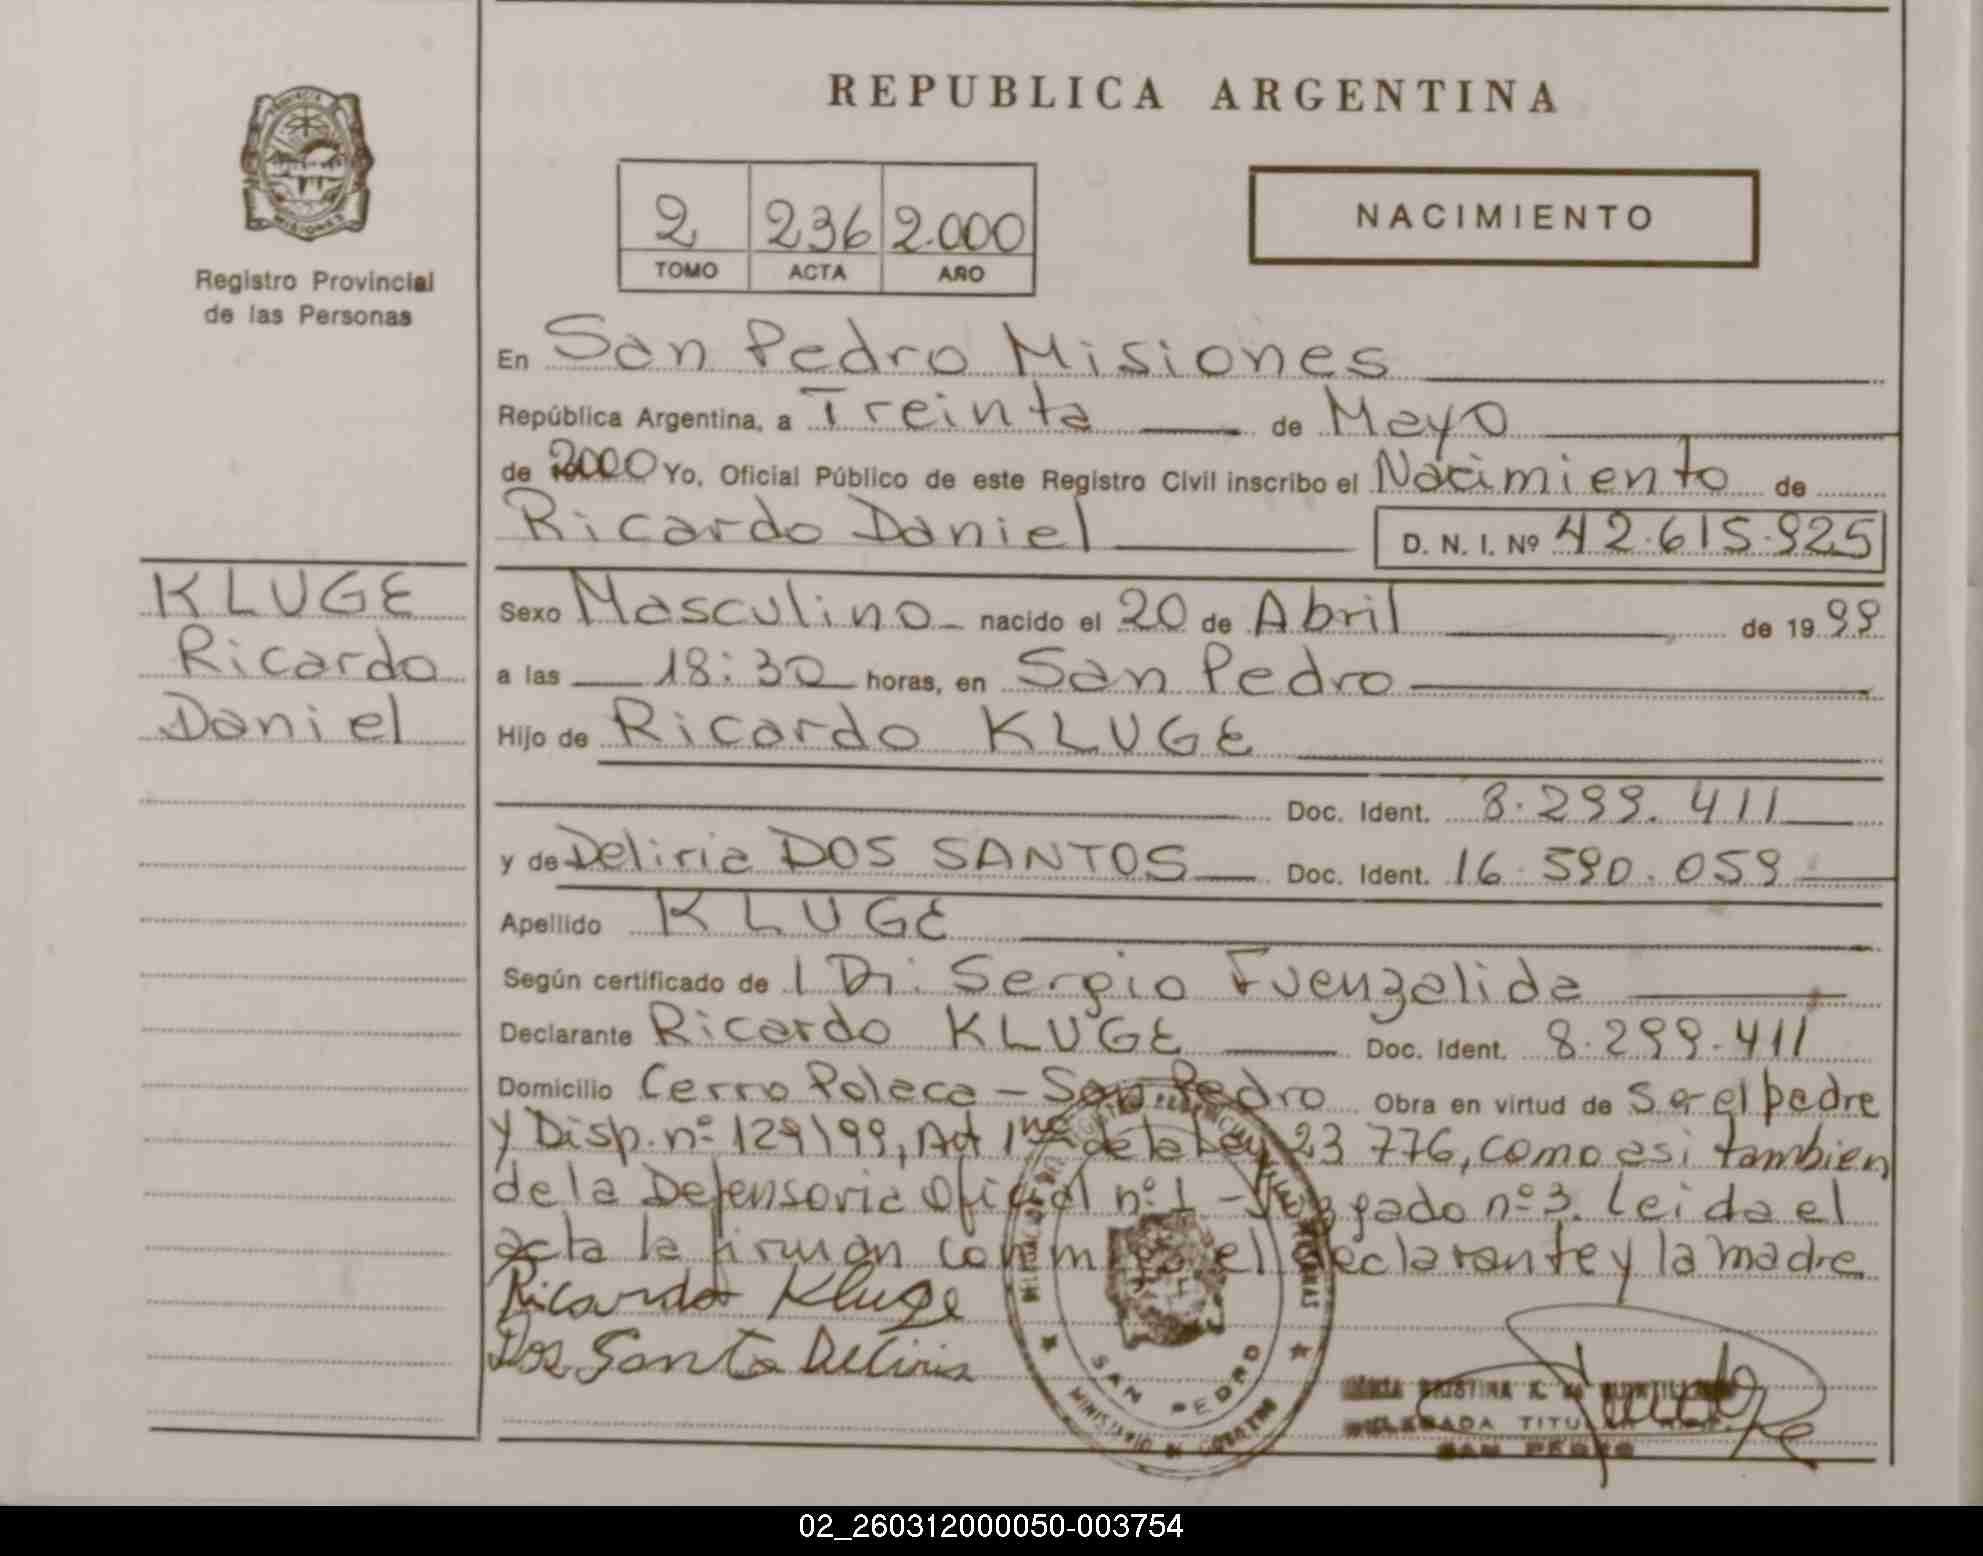 REPUBLICA ARGENTINA
PROVINCIA
MISIONES
Registro Provincial
de las Personas
2 236 2.000
TOMO ACTA AÑO
NACIMIENTO
En San Pedro Misiones
República Argentina, a Treinta de Mayo
de 2000 Yo, Oficial Público de este Registro Civil inscribo el Nacimiento de
Ricardo Daniel D. N. I. Nº 42.615.925
KLUGE
Ricardo
Daniel
Sexo Masculino nacido el 20 de Abril de 19 99
a las 18:30 horas, en San Pedro
Hijo de Ricardo KLUGE
Doc. Ident. 8.299.411
y de Deliria DOS SANTOS Doc. Ident. 16.590.059
Apellido KLUGE
Según certificado de Sergio Fuenzalida
Declarante Ricardo KLUGE Doc. Ident. 8.299.411
Domicilio Cerro Poleca - San Pedro Obra en virtud de Ser el padre
y Disp. nº 129/99, Art 1 de la Ley 23 776, como asi tambien
de la Defensoria Oficial nº 1 - Juzgado nº 3. Leida el
acta la firman conmigo el declarante y la madre
Ricardo Kluge
Dos Santo Deliria
SAN PEDRO
MINISTERIO DE GOBIERNO
DELEGADA TITULAR
SAN PEDRO
02_260312000050-003754